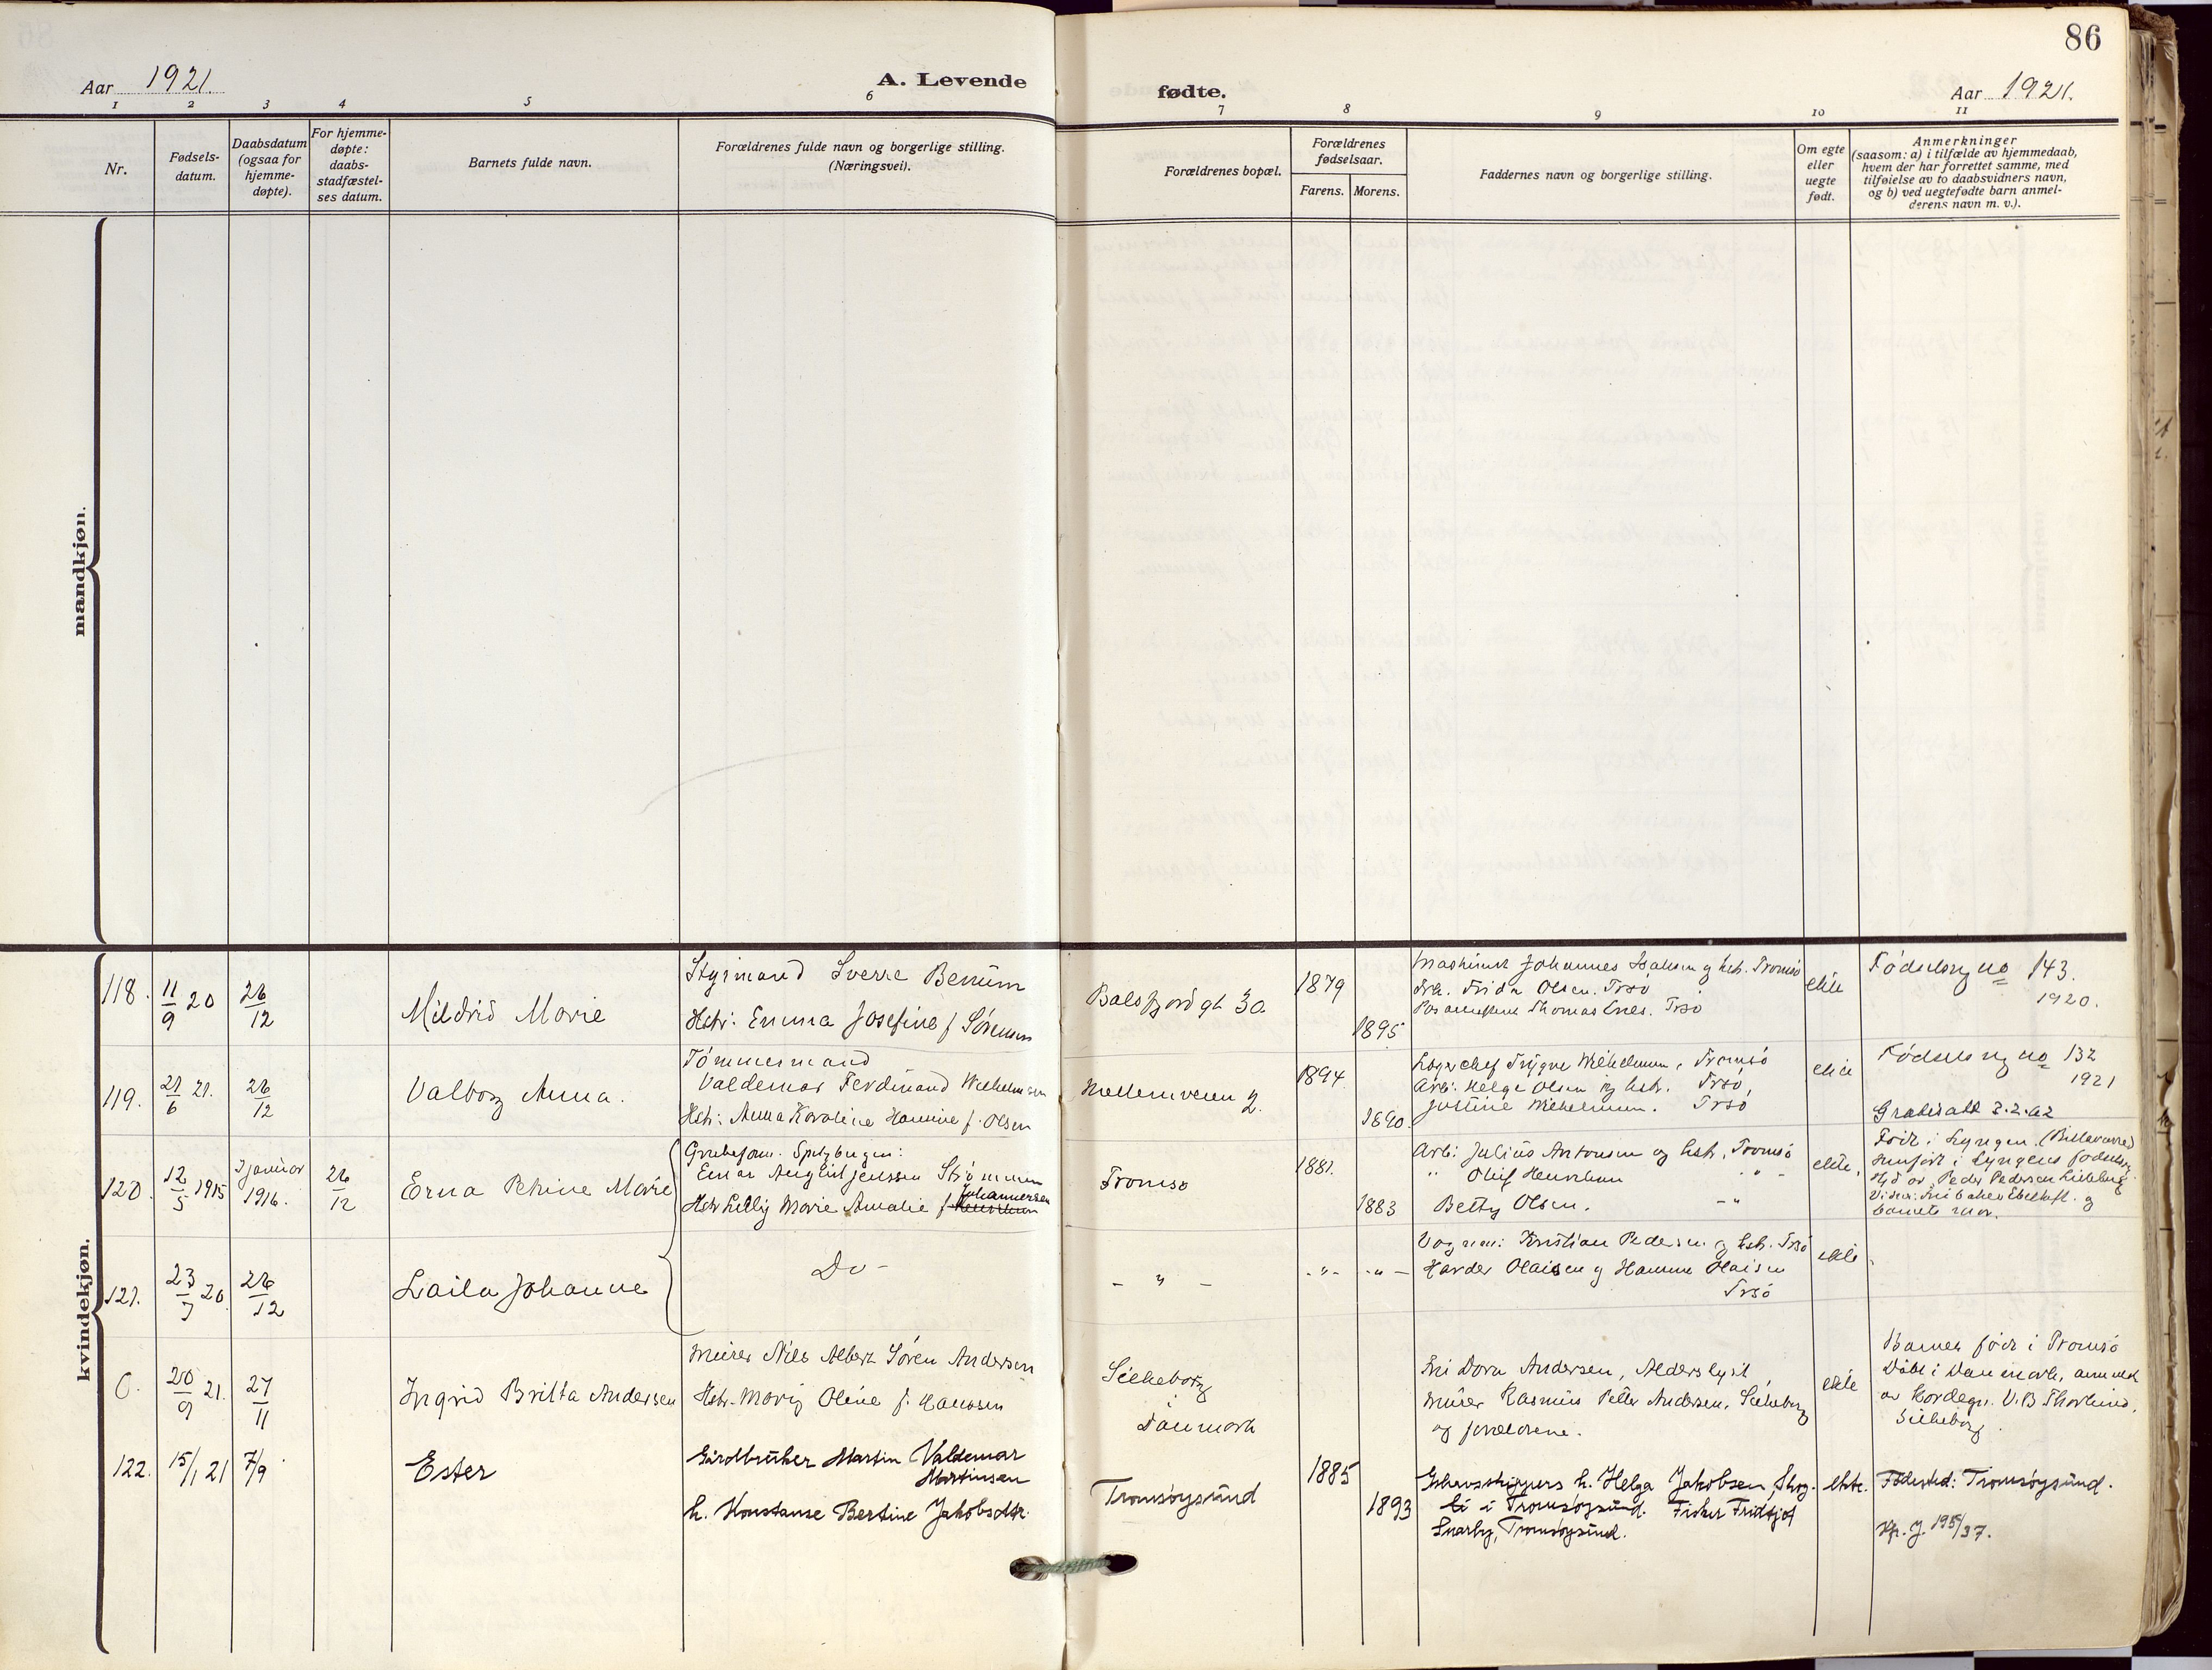 86
Aar 1921.
A. Levende
fødte.
Aar 1921.
1 2 3 4 5 6 7 8 9 10 11
Nr.
Fødsels-
datum.
Daabsdatum
(ogsaa for
hjemme-
døpte).
For hjemme-
døpte:
daabs-
stadfæstel-
ses datum.
Barnets fulde navn.
Forældrenes fulde navn og borgerlige stilling.
(Næringsvei).
Forældrenes bopæl.
Forældrenes
fødselsaar.
Farens. Morens.
Faddernes navn og borgerlige stilling.
Om egte
eller
uegte
født.
Anmerkninger
(saasom: a) i tilfælde av hjemmedaab,
hvem der har forrettet samme, med
tilføielse av to daabsvidners navn,
og b) ved uegtefødte barn anmel-
derens navn m. v.).
mandkjøn.
kvindekjøn.
118. 11/9 20 26/12
Mildrid Marie
Styrmand Sverre Benum
Hstr: Emma Josefine f Sörensen
Balsfjordgt 30.
1879
1895
Johannes og hst. Tromsö
Frk. Frida Olsen. Trsö
Thomas Enes. Trsö
ekte
Födselsreg no 143.
1920.
119. 21/6 21. 26/12
Valborg Anna.
Tömmermand
Valdemar Ferdinand Wilhelmsen
Hstr: Anna Karoline Hansine f. Olsen
Mellemveien 2.
1894
1890.
Lagerchef Trygve Wilhelmsen, Tromsö
Arb: Helge Olsen og hst. Trsö,
Justine Wilhelmsen. Trsö
ekte
Födselsreg no 132
1921
Gratisatt 2.2.62
120. 12/5 1915 Januar
1916. 26/12
Erna Petrine Marie
Grubeform. Spitzbergen:
Einar August Jenssen Strömmen
Johannessen
Hstr Lilly Marie Amalie f
Tromsö
1881.
1883
Arb: Julius Antonsen og hst. Tromsö
" Oluf Henriksen " -
Betty Olsen. - "
ekte,
Född i Lyngen.
i Lyngens födselsreg.
Hjd av Peder Pedersen
og
barnets mor.
121. 23/7 20 26/12
Laila Johanne
Do -
- " -
- " - - " -
Vognm: Kristian Pedersen og hst. Trsö
Harder Olaisen og Hanna Olaisen
Trsö
ekte.
0. 20/9 21. 27/11
Ingrid Britta Andersen
Murer Nils Albert Sören Andersen
Hstr. Marig Oline f. Hanssen
Silkeborg
Danmark
Fri Dora Andersen, Alderslyst,
Murer Rasmus Peter Andersen, Silkeborg
og forældrene.
ekte
Barnet född i Tromsö
Döbt i Danmark, anmeldt
av Kordegn. V. B Thorlund,
Silkeborg
122. 15/1 21 7/9
Ester
Gårdbruker Martin Valdemar
Martinsen
h. Konstanse Bertine Jakobsdtr.
Tromsøysund
1885
1893
h. Helga Jakobsen,
i Tromsøysund. Fisker Fridtjof
Snarby, Tromsøysund.
ekte.
Fødested: Tromsøysund.
Kfr. J. 195/37.